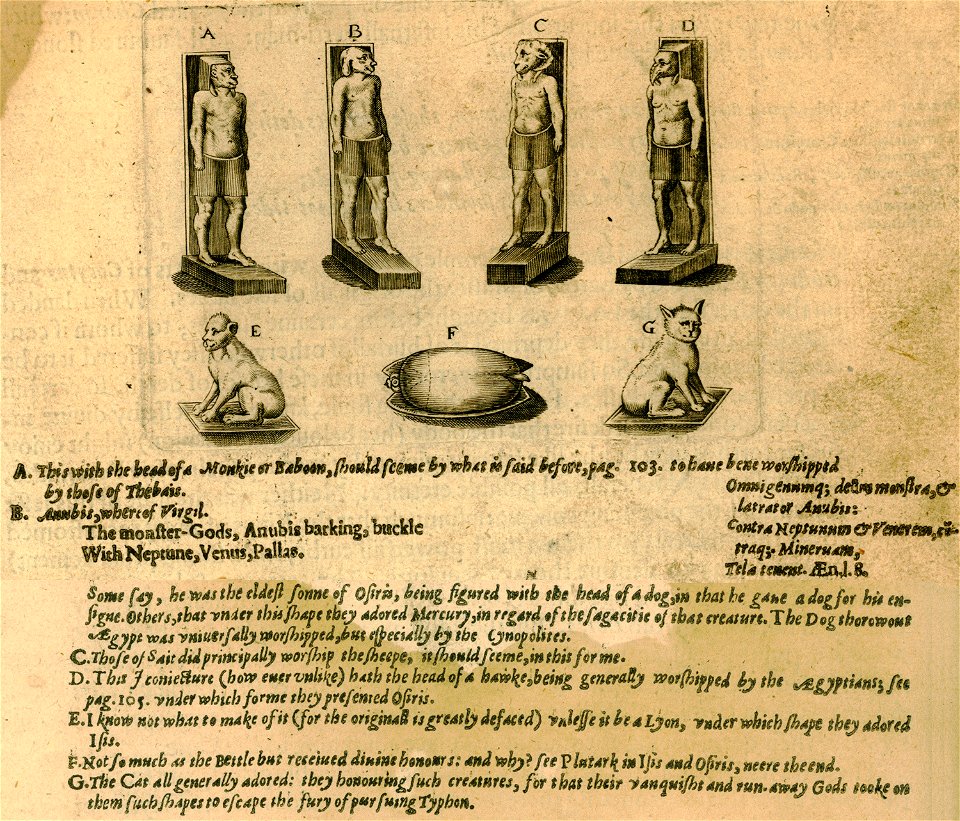 A B C D
E F G
A. This with the head of a Monkie or Baboon, should seeme by what is said before, pag. 103. to haue bene worshipped
by those of Thebais.
B. Anubis, whereof Virgil.
The monster-Gods, Anubis barking, buckle
With Neptune, Venus, Pallas.
Omnigenumq; deûm monstra, &
latrator Anubis:
Contra Neptunum & Venerem, cõ-
traq; Mineruam,
Tela tenent. Æn. l. 8.
Some say, he was the eldest sonne of Osiris, being figured with the head of a dog, in that he gaue a dog for his en-
signe. Others, that vnder this shape they adored Mercury, in regard of the sagacitie of that creature. The Dog thorowout
Ægypt was vniuersally worshipped, but especially by the Cynopolites.
C. Those of Sait did principally worship the sheepe, it should seeme, in this forme.
D. This I coniecture (how euer vnlike) hath the head of a hawke, being generally worshipped by the Ægyptians; see
pag. 105. vnder which forme they presented Osiris.
E. I know not what to make of it (for the originall is greatly defaced) vnlesse it be a Lyon, vnder which shape they adored
Isis.
F. Not so much as the Bettle but receiued diuine honours: and why? see Plutark in Isis and Osiris, neere the end.
G. The Cat all generally adored: they honouring such creatures, for that their vanquisht and run-away Gods tooke on
them such shapes to escape the fury of pursuing Typhon.